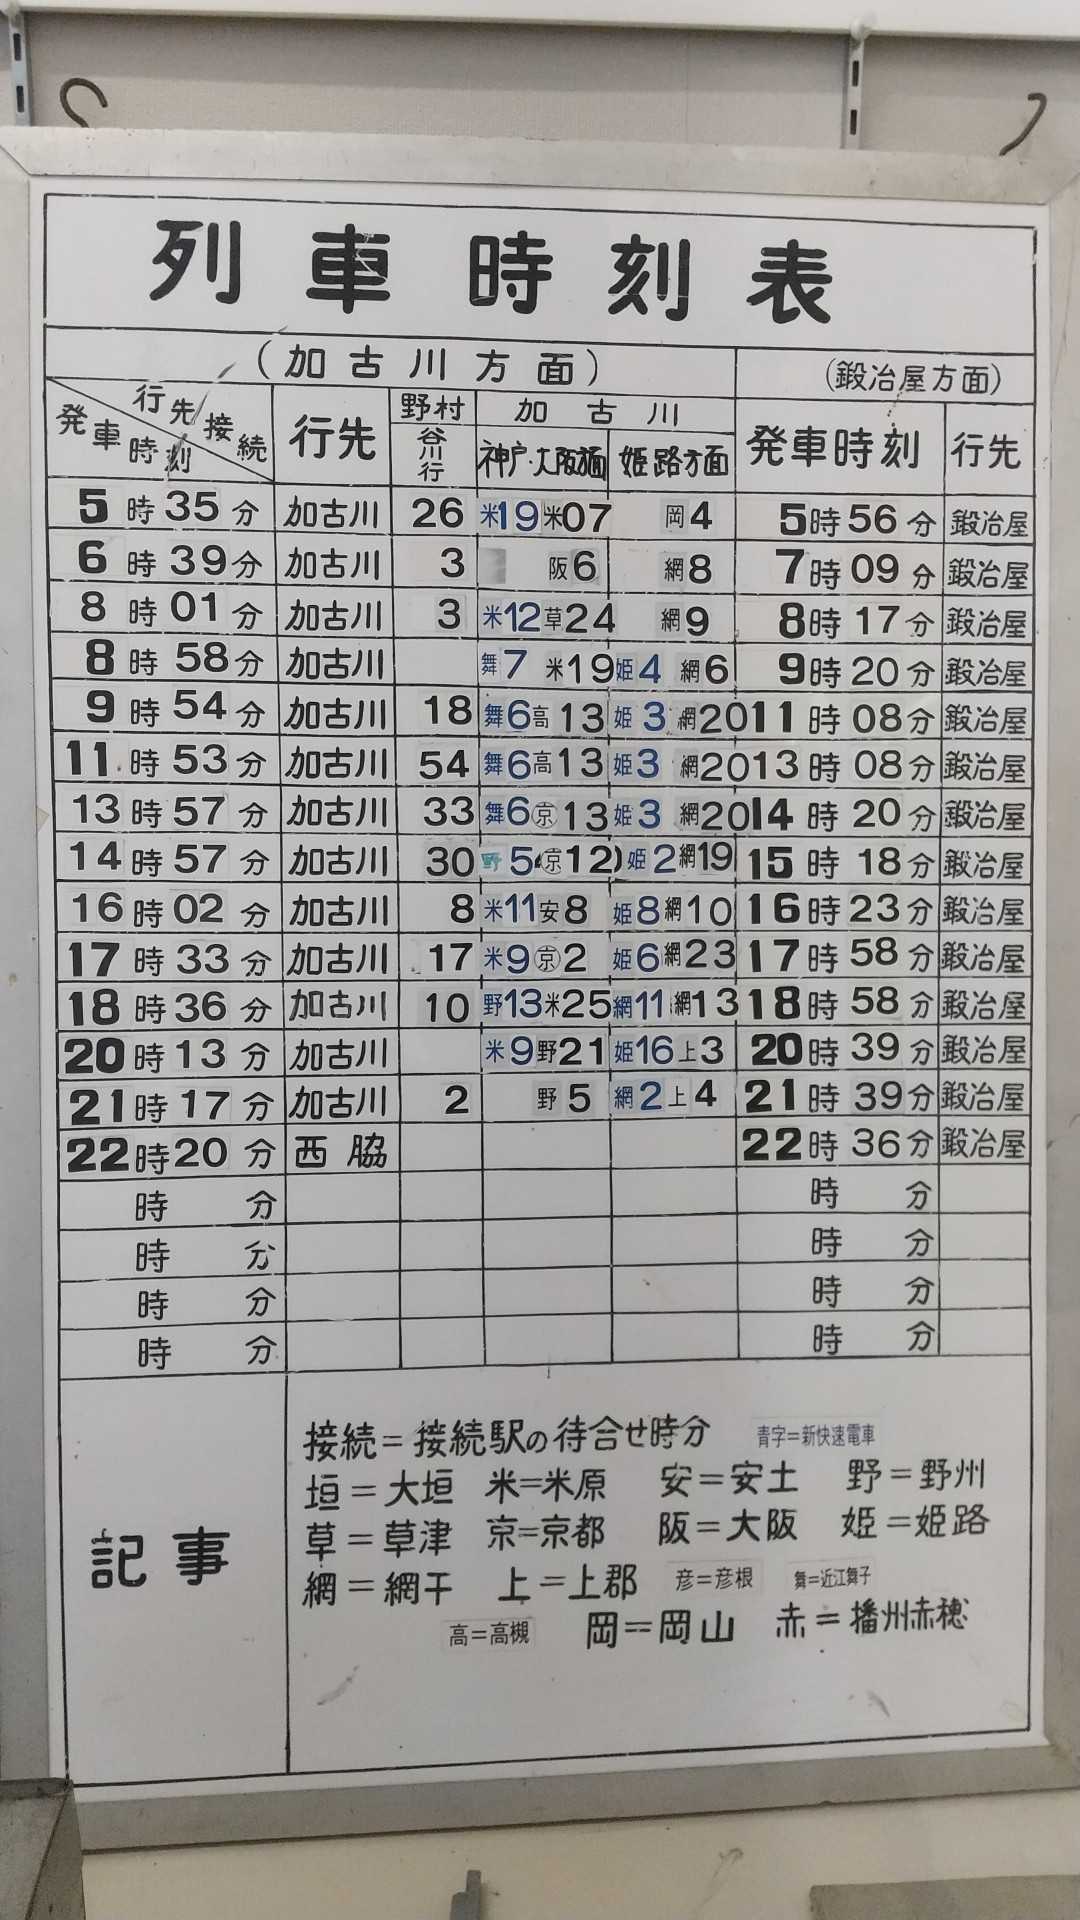 列車時刻表
(加古川方面) (鍛冶屋方面)
行先 接続 発車時刻 行先 野村 谷川行 加古川 神戸・大阪方面 姫路方面 発車時刻 行先
5時35分 加古川 26 米19 米07 岡4 5時56分 鍛冶屋
6時39分 加古川 3 阪6 網8 7時09分 鍛冶屋
8時01分 加古川 3 米12 草24 網9 8時17分 鍛冶屋
8時58分 加古川 舞7 米19 姫4 網6 9時20分 鍛冶屋
9時54分 加古川 18 舞6 高13 姫3 網20 11時08分 鍛冶屋
11時53分 加古川 54 舞6 高13 姫3 網20 13時08分 鍛冶屋
13時57分 加古川 33 舞6 ㊊13 姫3 網20 14時20分 鍛冶屋
14時57分 加古川 30 野5 (京12) 姫2 網19 15時18分 鍛冶屋
16時02分 加古川 8 米11 安8 姫8 網10 16時23分 鍛冶屋
17時33分 加古川 17 米9 京2 姫6 網23 17時58分 鍛冶屋
18時36分 加古川 10 野13 米25 網11 網13 18時58分 鍛冶屋
20時13分 加古川 米9 野21 姫16 上3 20時39分 鍛冶屋
21時17分 加古川 2 野5 網2 上4 21時39分 鍛冶屋
22時20分 西脇 22時36分 鍛冶屋
時 分 時 分
時 分 時 分
時 分 時 分
時 分 時 分
記事
接続=接続駅の待合せ時分 青字=新快速電車
垣=大垣 米=米原 安=安土 野=野州
草=草津 京=京都 阪=大阪 姫=姫路
網=網干 上=上郡 彦=彦根 舞=近江舞子
高=高槻 岡=岡山 赤=播州赤穂